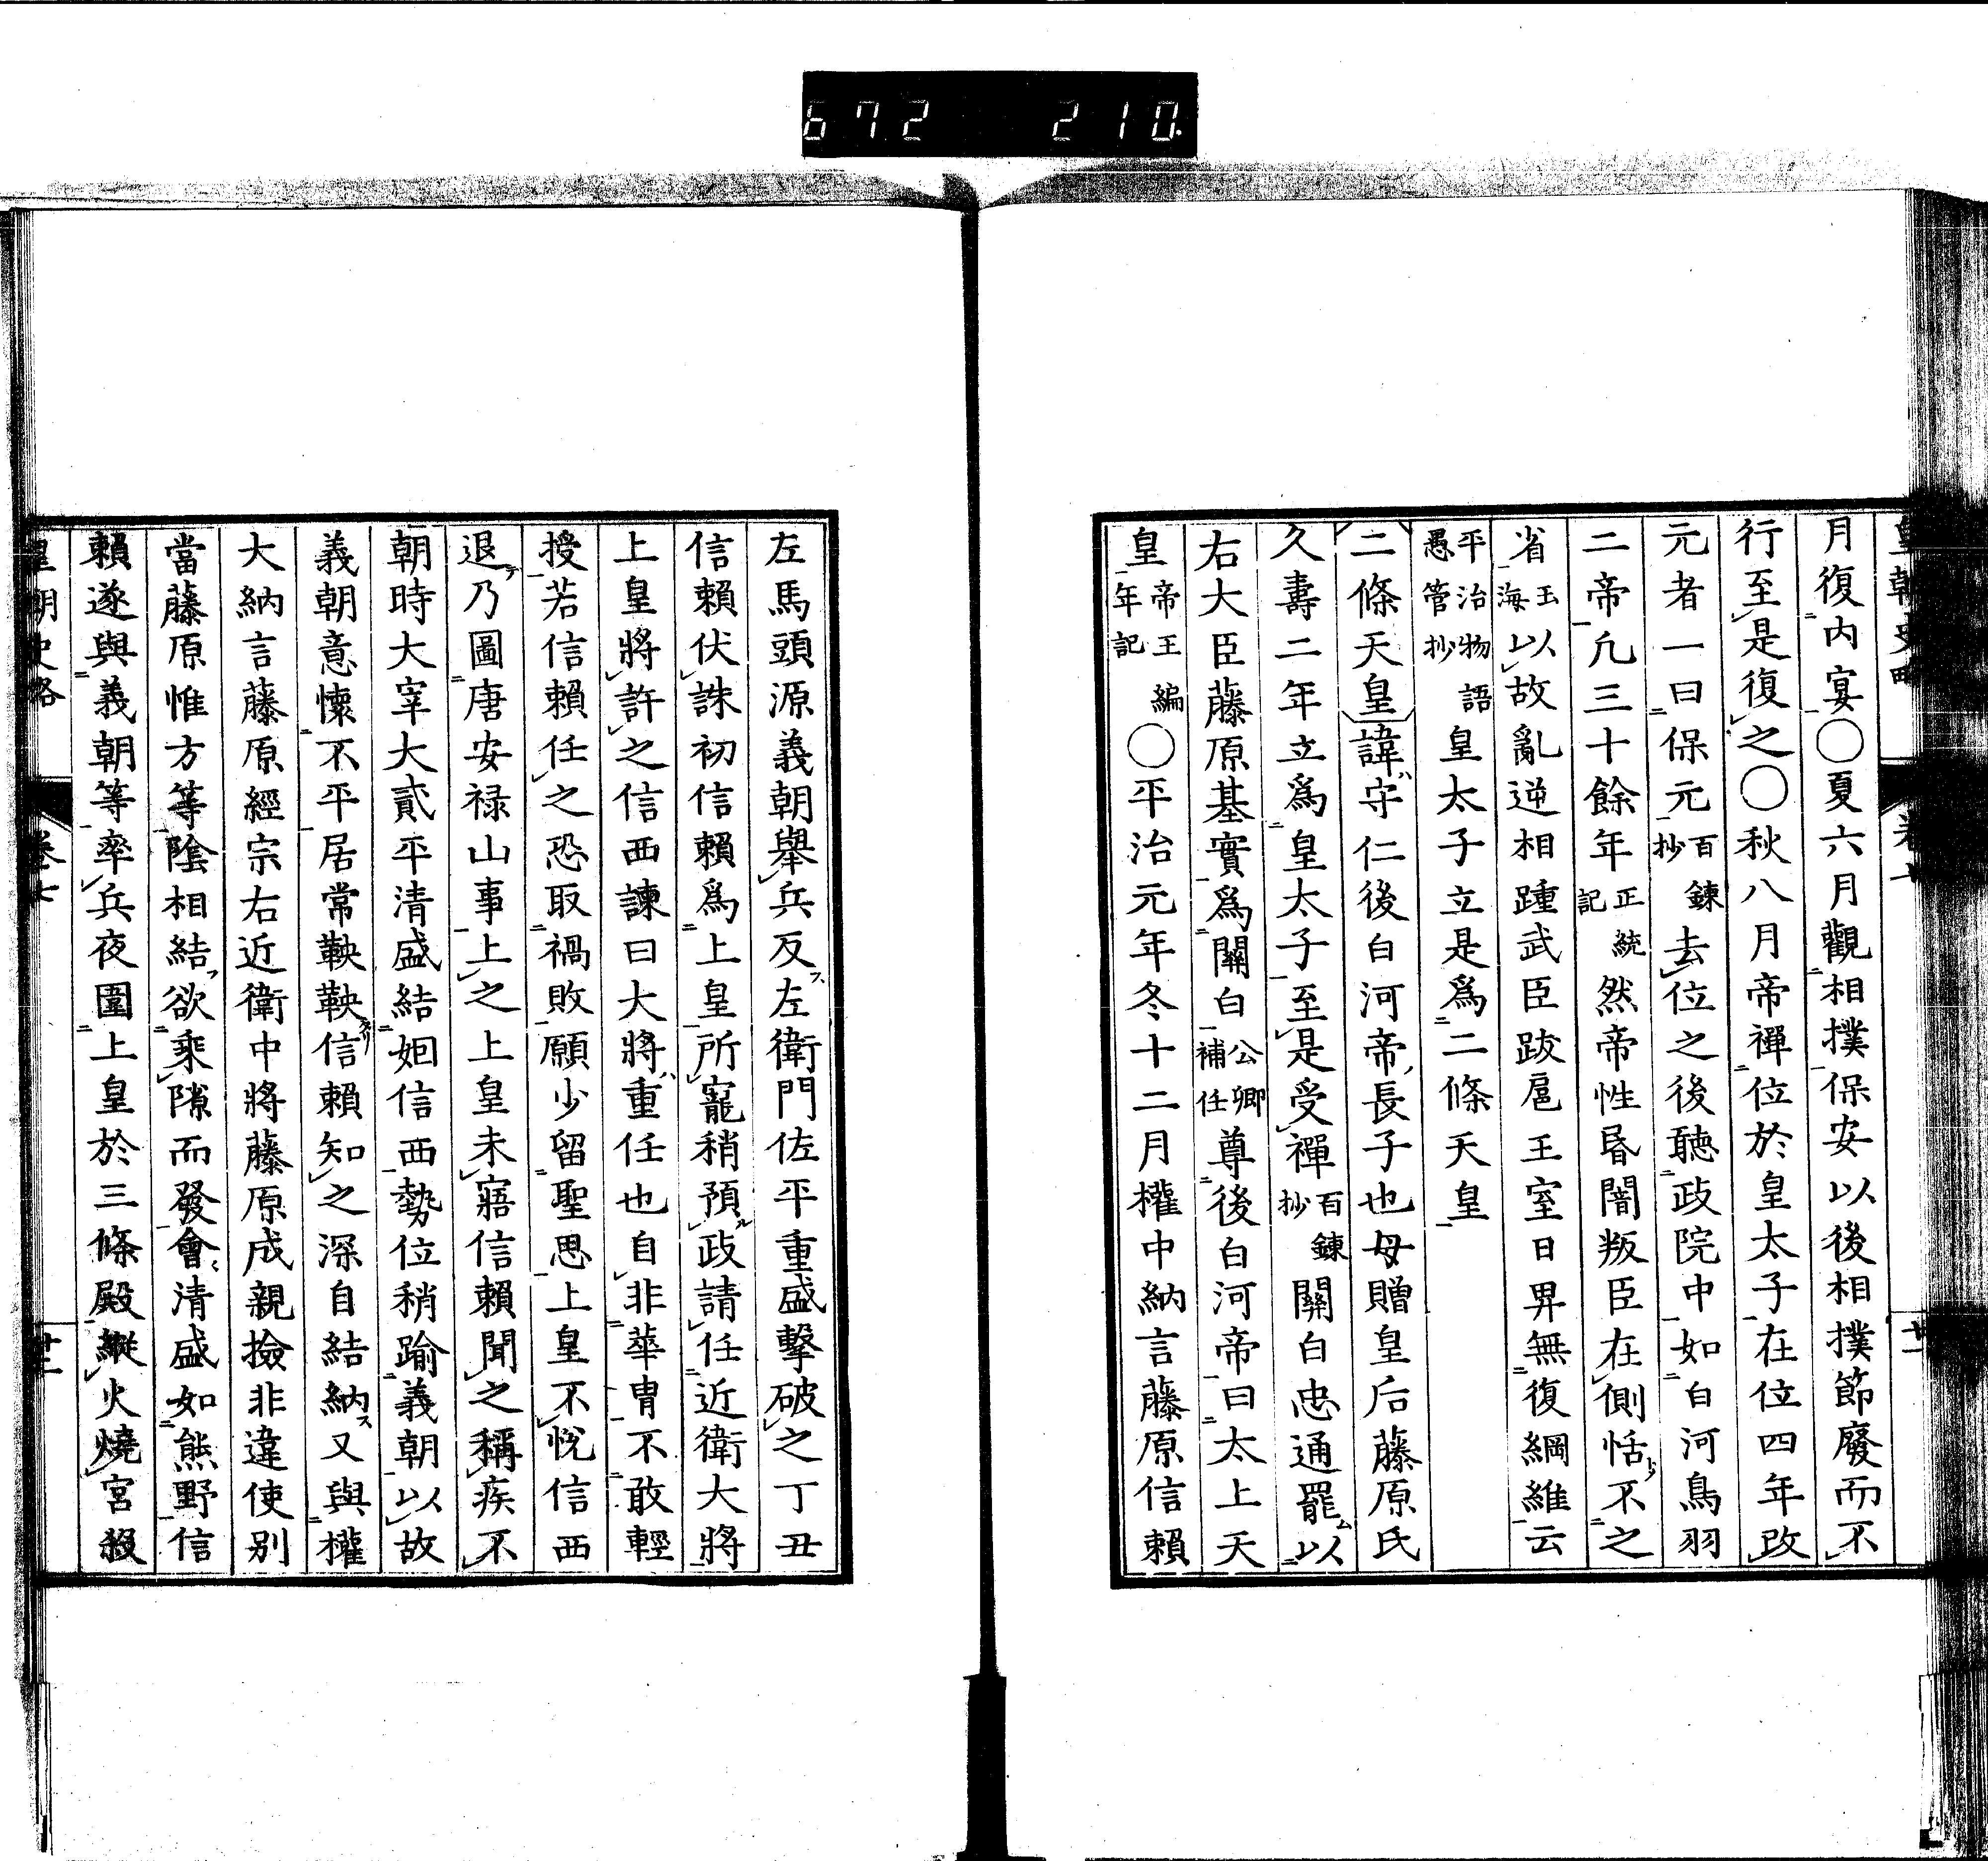 672 210.
皇朝史略 卷七 十一
月復内宴○夏六月觀相撲保安以後相撲節廢而不
行至是復之○秋八月帝禪位於皇太子在位四年改
元者一曰保元百鍊抄去位之後聽政院中如白河鳥羽
二帝凡三十餘年正統記然帝性昏闇叛臣在側恬不之
省玉海以故亂逆相踵武臣跋扈王室日卑無復綱維云
平治物語愚管抄皇太子立是爲二條天皇
二條天皇諱守仁後白河帝長子也母贈皇后藤原氏
久壽二年立爲皇太子至是受禪百鍊抄關白忠通罷以
右大臣藤原基實爲關白公卿補任尊後白河帝曰太上天
皇帝王編年記○平治元年冬十二月權中納言藤原信賴
左馬頭源義朝舉兵反左衛門佐平重盛擊破之丁丑
信賴伏誅初信賴爲上皇所寵稍預政請任近衛大將
上皇將許之信西諫曰大將重任也自非華冑不敢輕
授若信賴任之恐取禍敗願少留聖思上皇不悅信西
退乃圖唐安祿山事上之上皇未寤信賴聞之稱疾不
朝時大宰大貳平清盛結姻信西勢位稍踰義朝以故
義朝意懷不平居常鞅鞅信賴知之深自結納又與權
大納言藤原經宗右近衛中將藤原成親撿非違使別
當藤原惟方等陰相結欲乘隙而發會清盛如熊野信
賴遂與義朝等率兵夜圍上皇於三條殿縱火燒宮殺
皇朝史略 卷七 十二